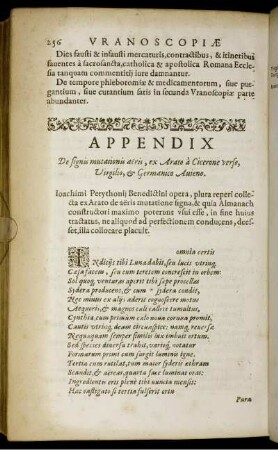 256 VRANOSCOPIÆ
Dies fausti & infausti mercaturis, contractibus, & itineribus
fauentes à sacrosancta, catholica & apostolica Romana Eccle-
sia tanquam commentitij iure damnantur.
De tempore phleboromiæ & medicamentorum, siue pur-
gantium, siue curantium satis in secunda Vranoscopiæ parte
abundanter.
APPENDIX
De signis mutationis aëris, ex Arato à Cicerone verso,
Virgilio, & Germanico Auieno.
Ioachimi Perythonij Benedictini opera, plura reperi colle-
cta ex Arato de aëris mutatione signa, & quia Almanach
constructori maximo poterunt vsui esse, in fine huius
tractatus, ne aliquid ad perfectionem conducens, dees-
set, illa collocare placuit.
omula certis
Indicijs tibi Luna dabit, seu lucis vtrinq,
Cæsa facem, seu cum teretem concrescit in orbem:
Sol quoq, venturas aperit tibi sæpe procellas
Sydera producens, & cum sydera condet,
Nec mium ex alijs aderit cognoscere motus
Aequoris, & magnos cæli callere tumultus,
Cynthia, cum primum cælo noua cornua promit,
Cautis vtrinq, deam circumspice: namq, reuersæ
Nequaquam semper similes imus imbuit ortum.
Sed species diuersa trahit, varieq, notatur
Formarum primi cum surgit luminis igne.
Tertia cum rutilat, tum maior syderis ethram
Scandit, & ætheas, quarta face luminat ortus:
Ingredientis eris plenè tibi nuncia mensis:
Hac castigato si tertia fulserit ortu
Pura